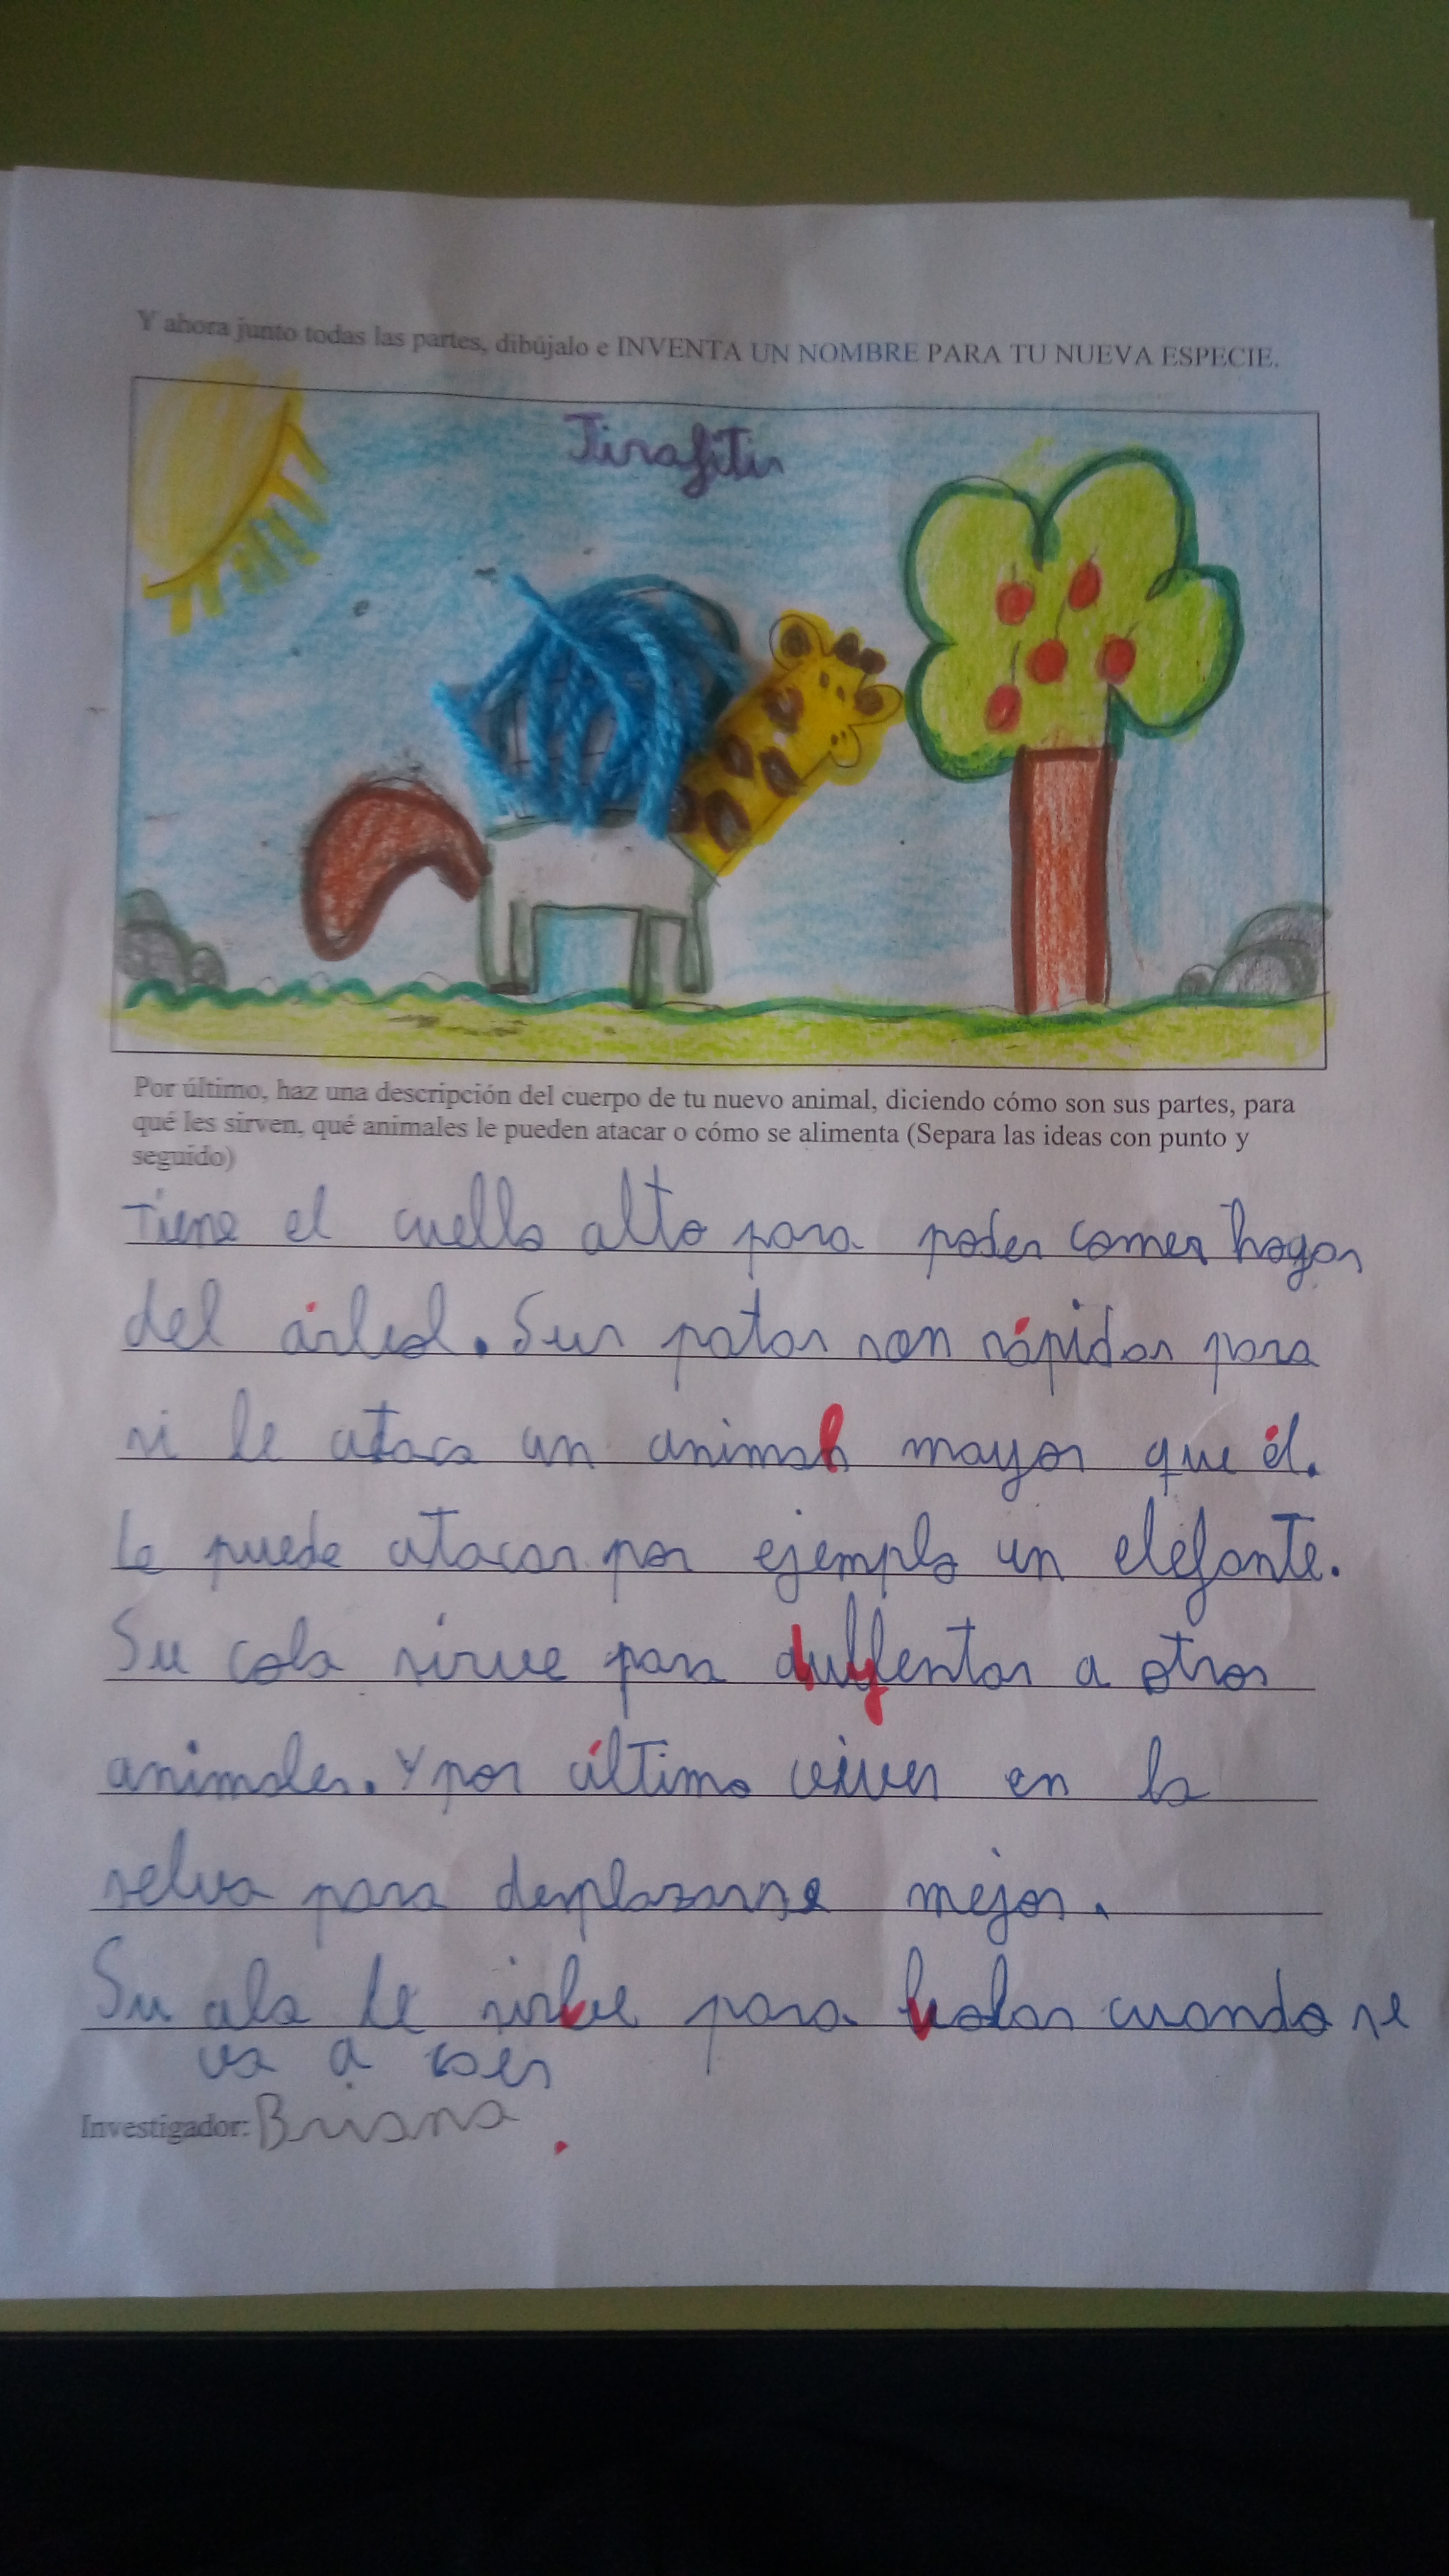 Y ahora junto todas las partes, dibújalo e INVENTA UN NOMBRE PARA TU NUEVA ESPECIE.
Jirafitis
Por último, haz una descripción del cuerpo de tu nuevo animal, diciendo cómo son sus partes, para
qué les sirven, qué animales le pueden atacar o cómo se alimenta (Separa las ideas con punto y
seguido)
Tiene el cuello alto para poder comer hogas
del árbol. Sus patas son rápidas para
si le ataca un animal mayor que él.
Le puede atacar por ejemplo un elefante.
Su cola sirve para ahuyentar a otros
animales. Y por último viven en la
selva para desplazarse mejor.
Su ala le sirve para volar cuando se
va a caer
Investigador: Briana.